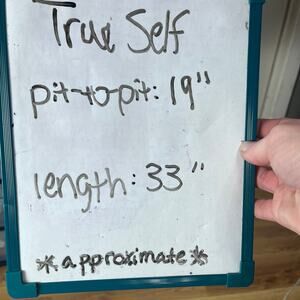 True Self
pit-to-pit: 19"
length: 33"
*approximate*